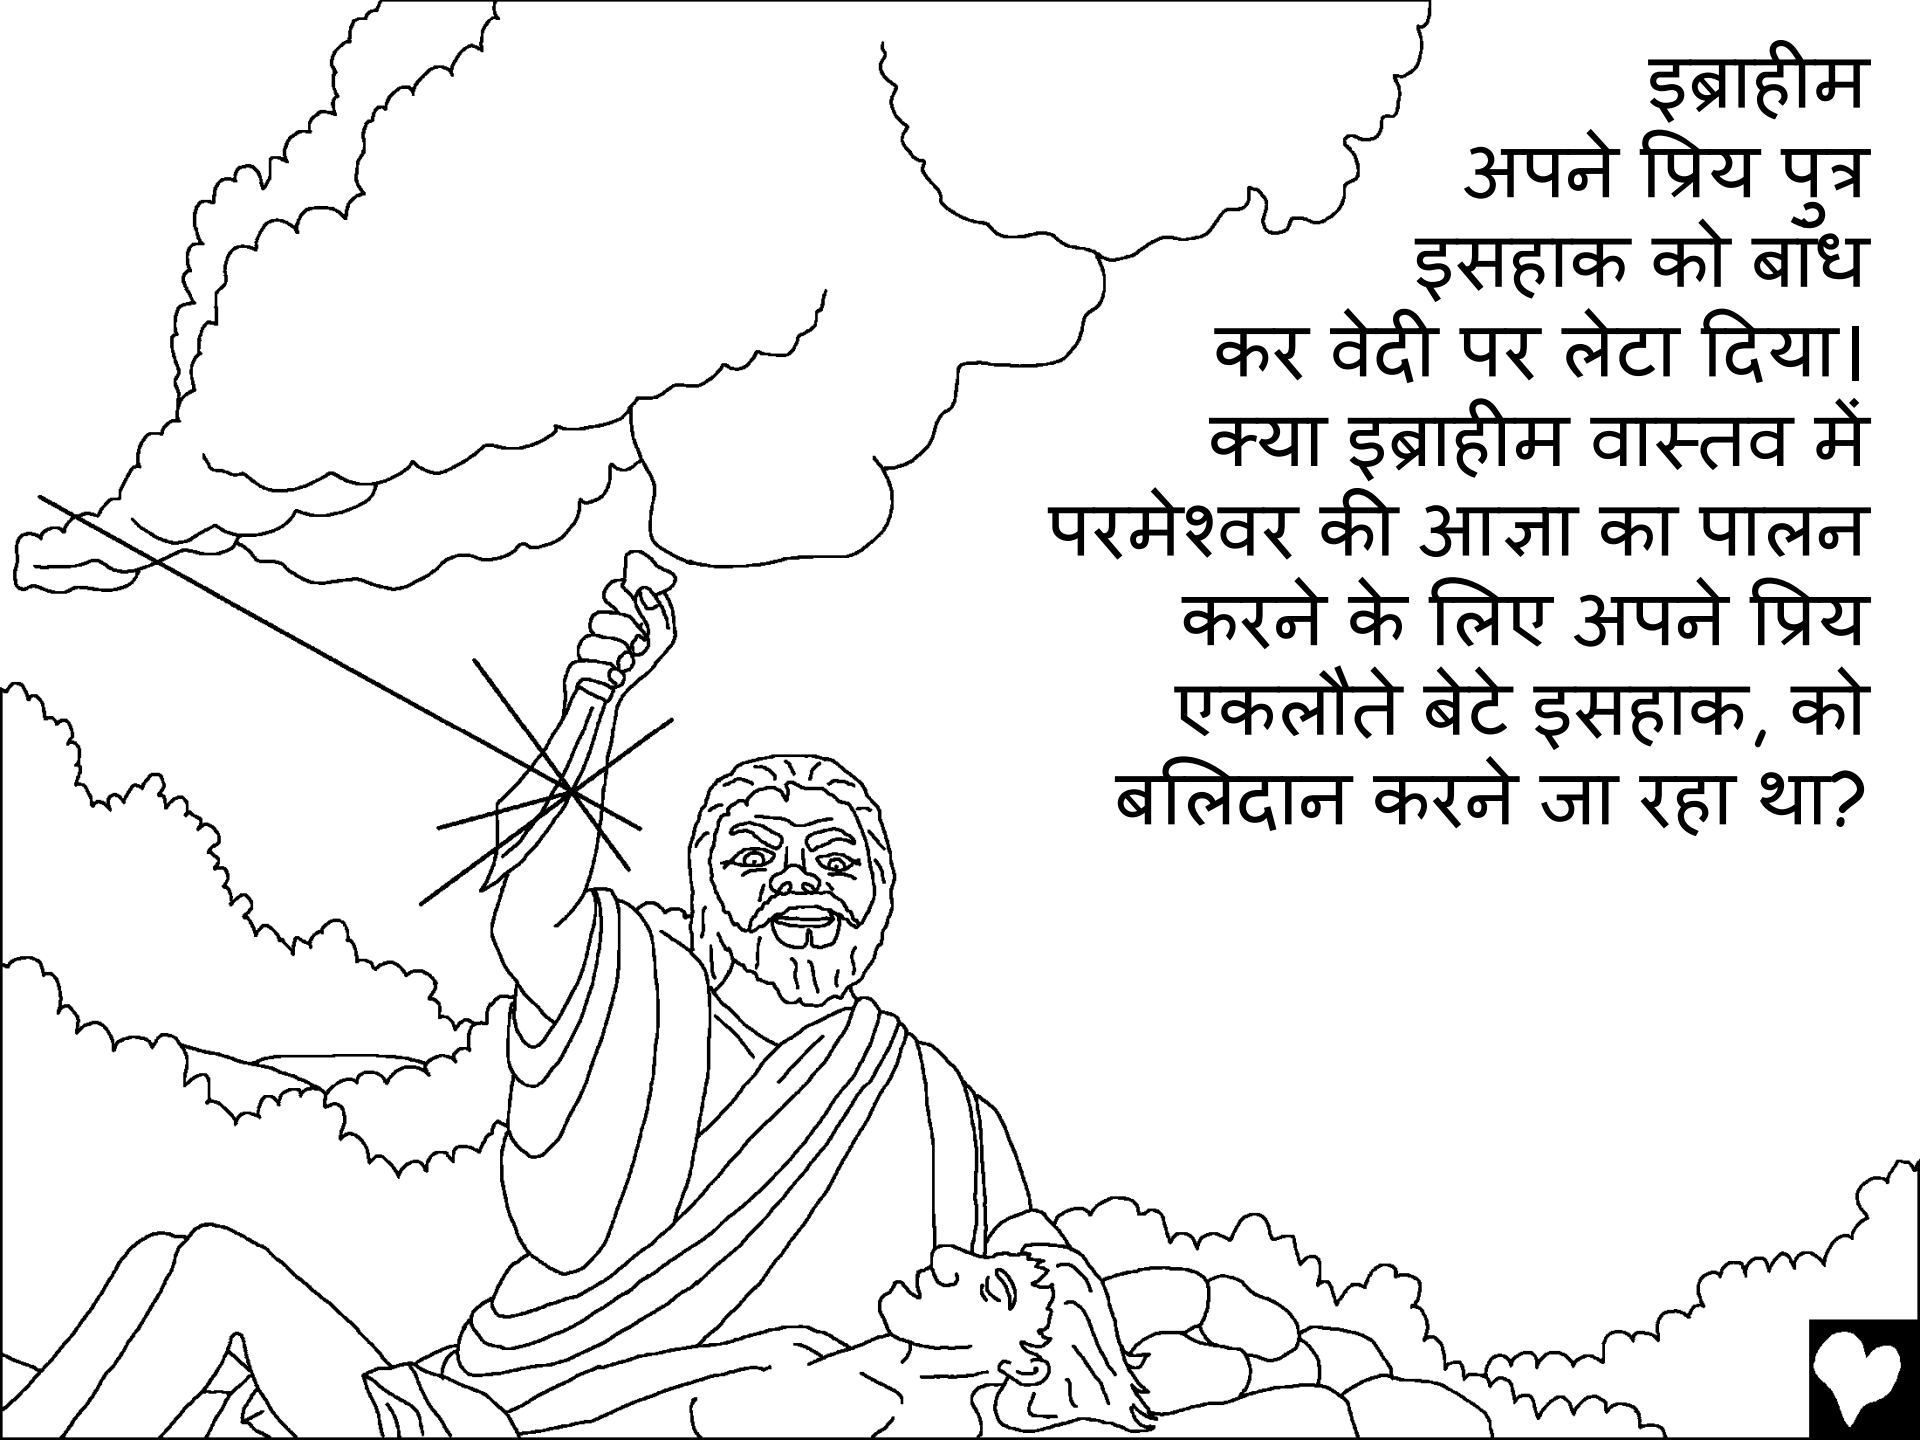 इब्राहीम
अपने प्रिय पुत्र
इसहाक को बांध
कर वेदी पर लेटा दिया।
क्या इब्राहीम वास्तव में
परमेश्वर की आज्ञा का पालन
करने के लिए अपने प्रिय
एकलौते बेटे इसहाक, को
बलिदान करने जा रहा था?